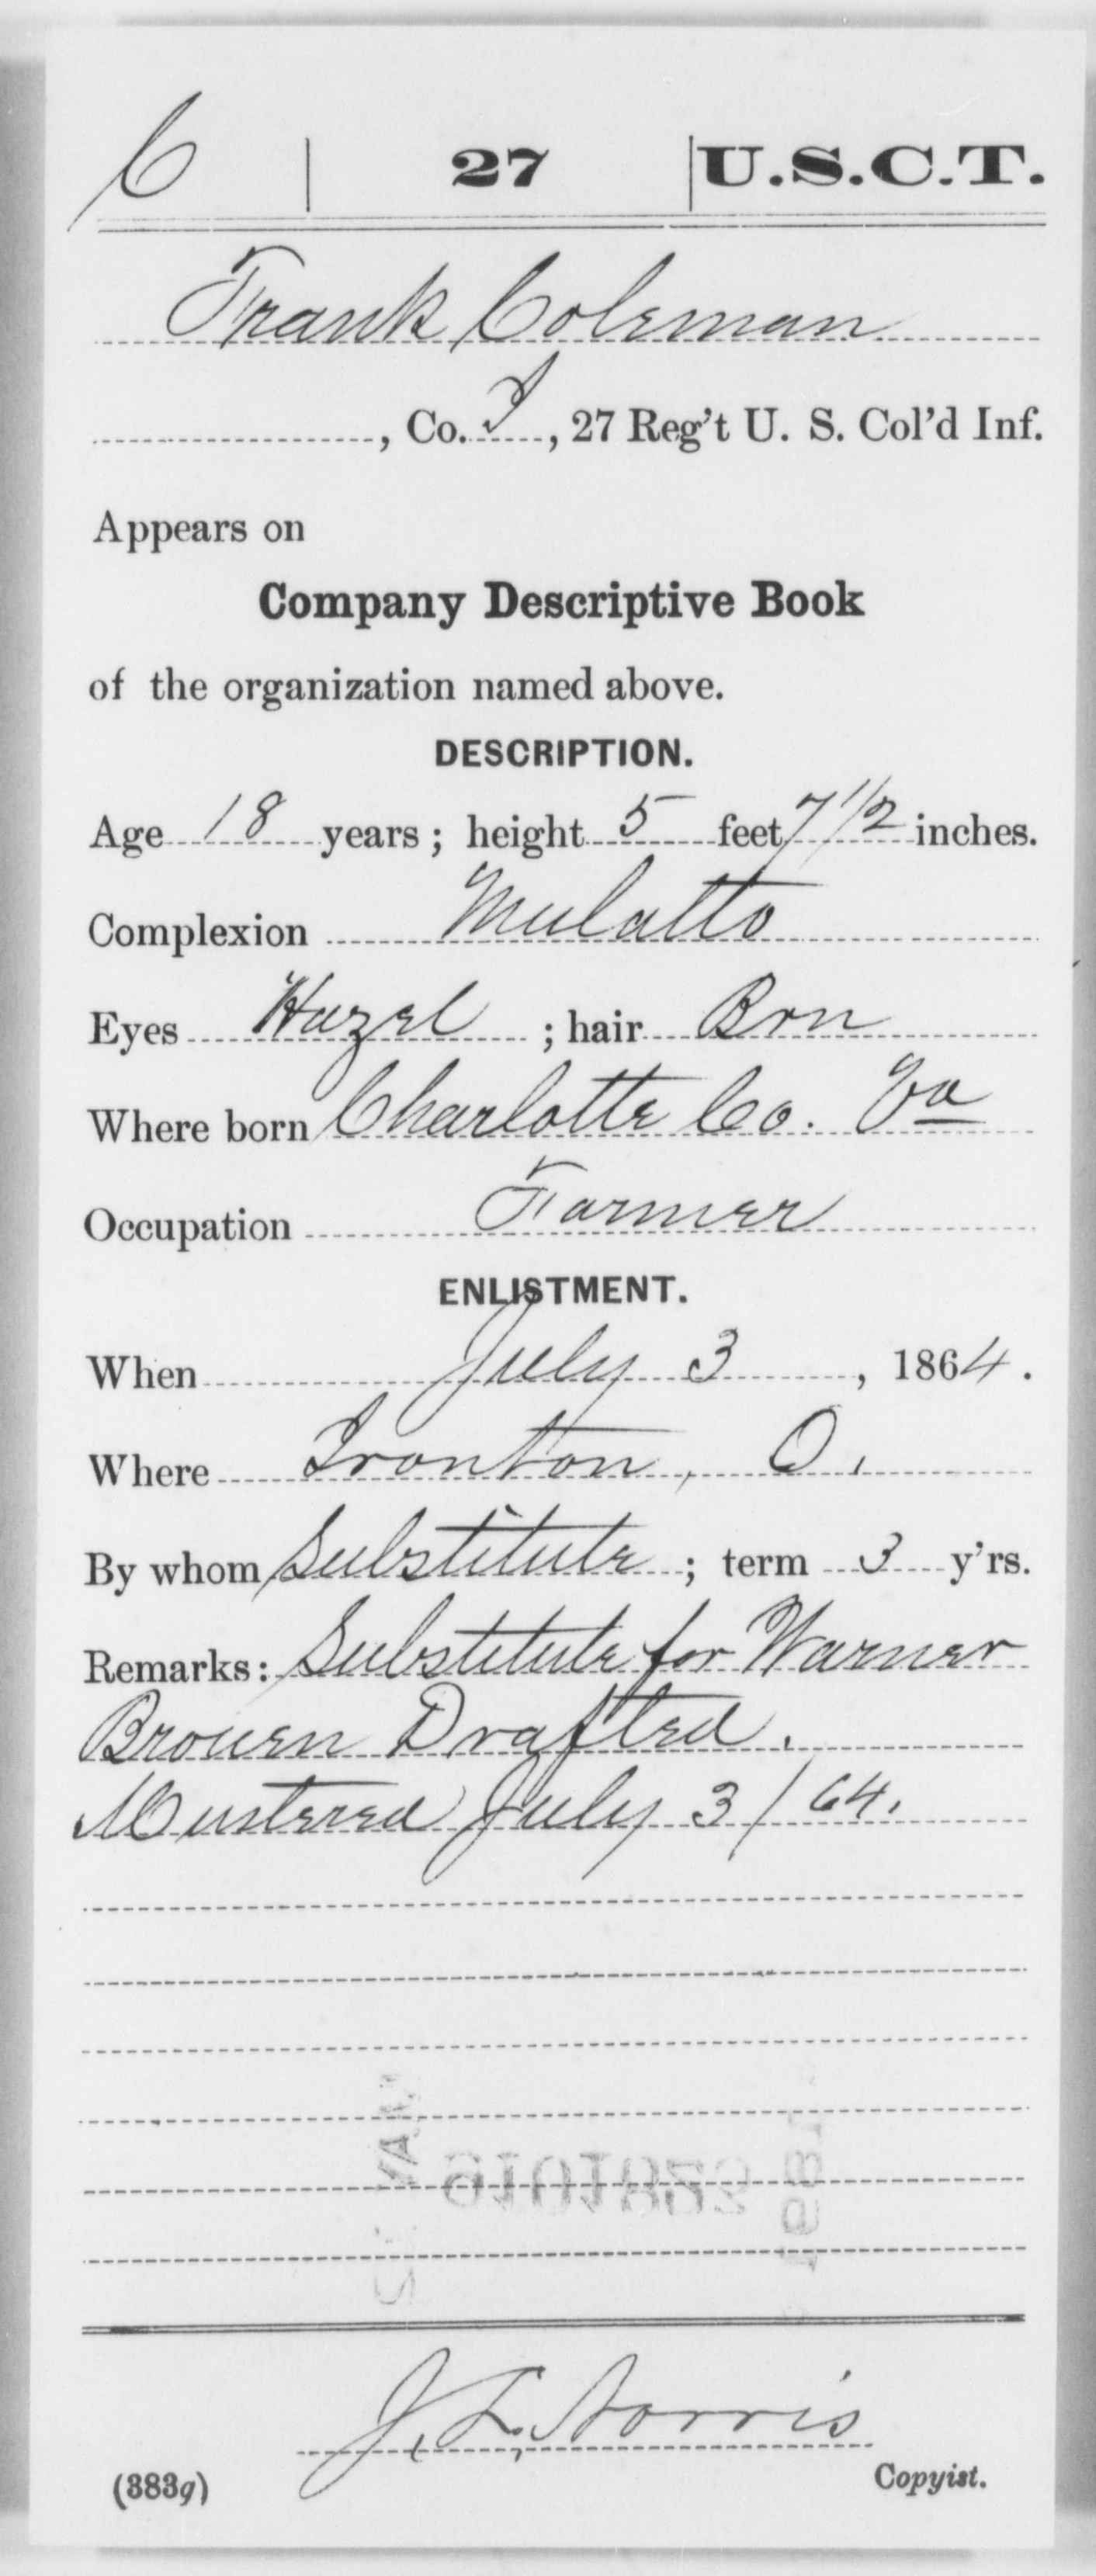 C | 27 | U.S.C.T.
Frank Coleman
, Co. I, 27 Reg't U. S. Col'd Inf.
Appears on
Company Descriptive Book
of the organization named above.
DESCRIPTION.
Age 18 years; height 5 feet 7 1/2 inches.
Complexion Mulatto
Eyes Hazel ; hair Brn
Where born Charlotte Co. Va
Occupation Farmer
ENLISTMENT.
When July 3, 1864.
Where Ironton, O.
By whom Substitute; term 3 y'rs.
Remarks: Substitute for Warner
Brouen Drafted.
Mustered July 3/64.
J. L. Norris
Copyist.
(383g)